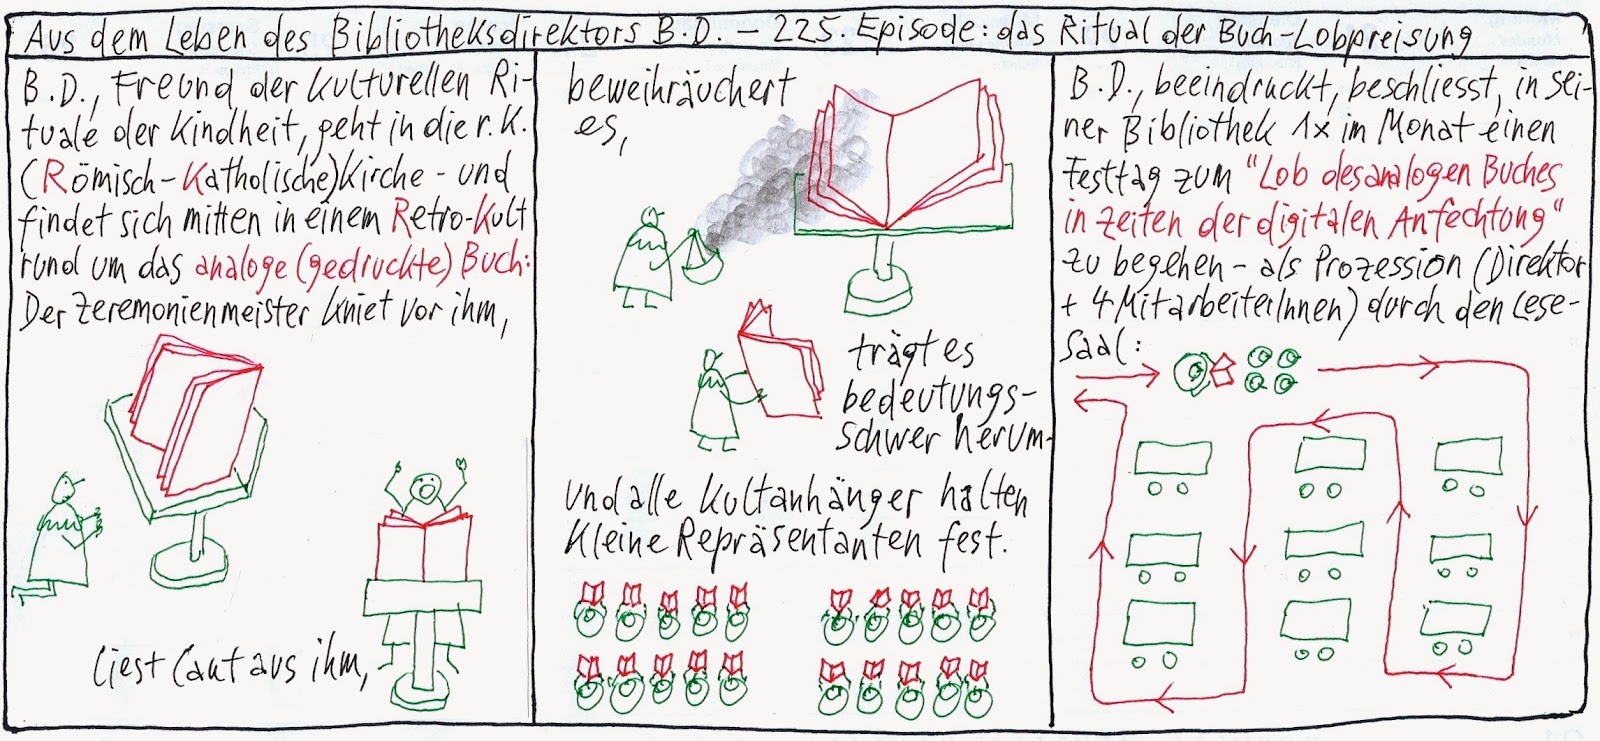 Aus dem Leben des Bibliotheksdirektors B.D. – 225. Episode: das Ritual der Buch-Lobpreisung
B.D., Freund der kulturellen Ri-
tuale der Kindheit, geht in die r.k.
(Römisch-Katholische) Kirche - und
findet sich mitten in einem Retro-Kult
rund um das analoge (gedruckte) Buch:
Der Zeremonienmeister kniet vor ihm,
liest laut aus ihm,
beweihräuchert
es,
trägt es
bedeutungs-
schwer herum-
und alle Kultanhänger halten
kleine Repräsentanten fest.
B.D., beeindruckt, beschliesst, in sei-
ner Bibliothek 1x im Monat einen
Festtag zum "Lob des analogen Buches
in Zeiten der digitalen Anfechtung"
zu begehen - als Prozession (Direktor
+ 4 MitarbeiterInnen) durch den Lese-
saal: